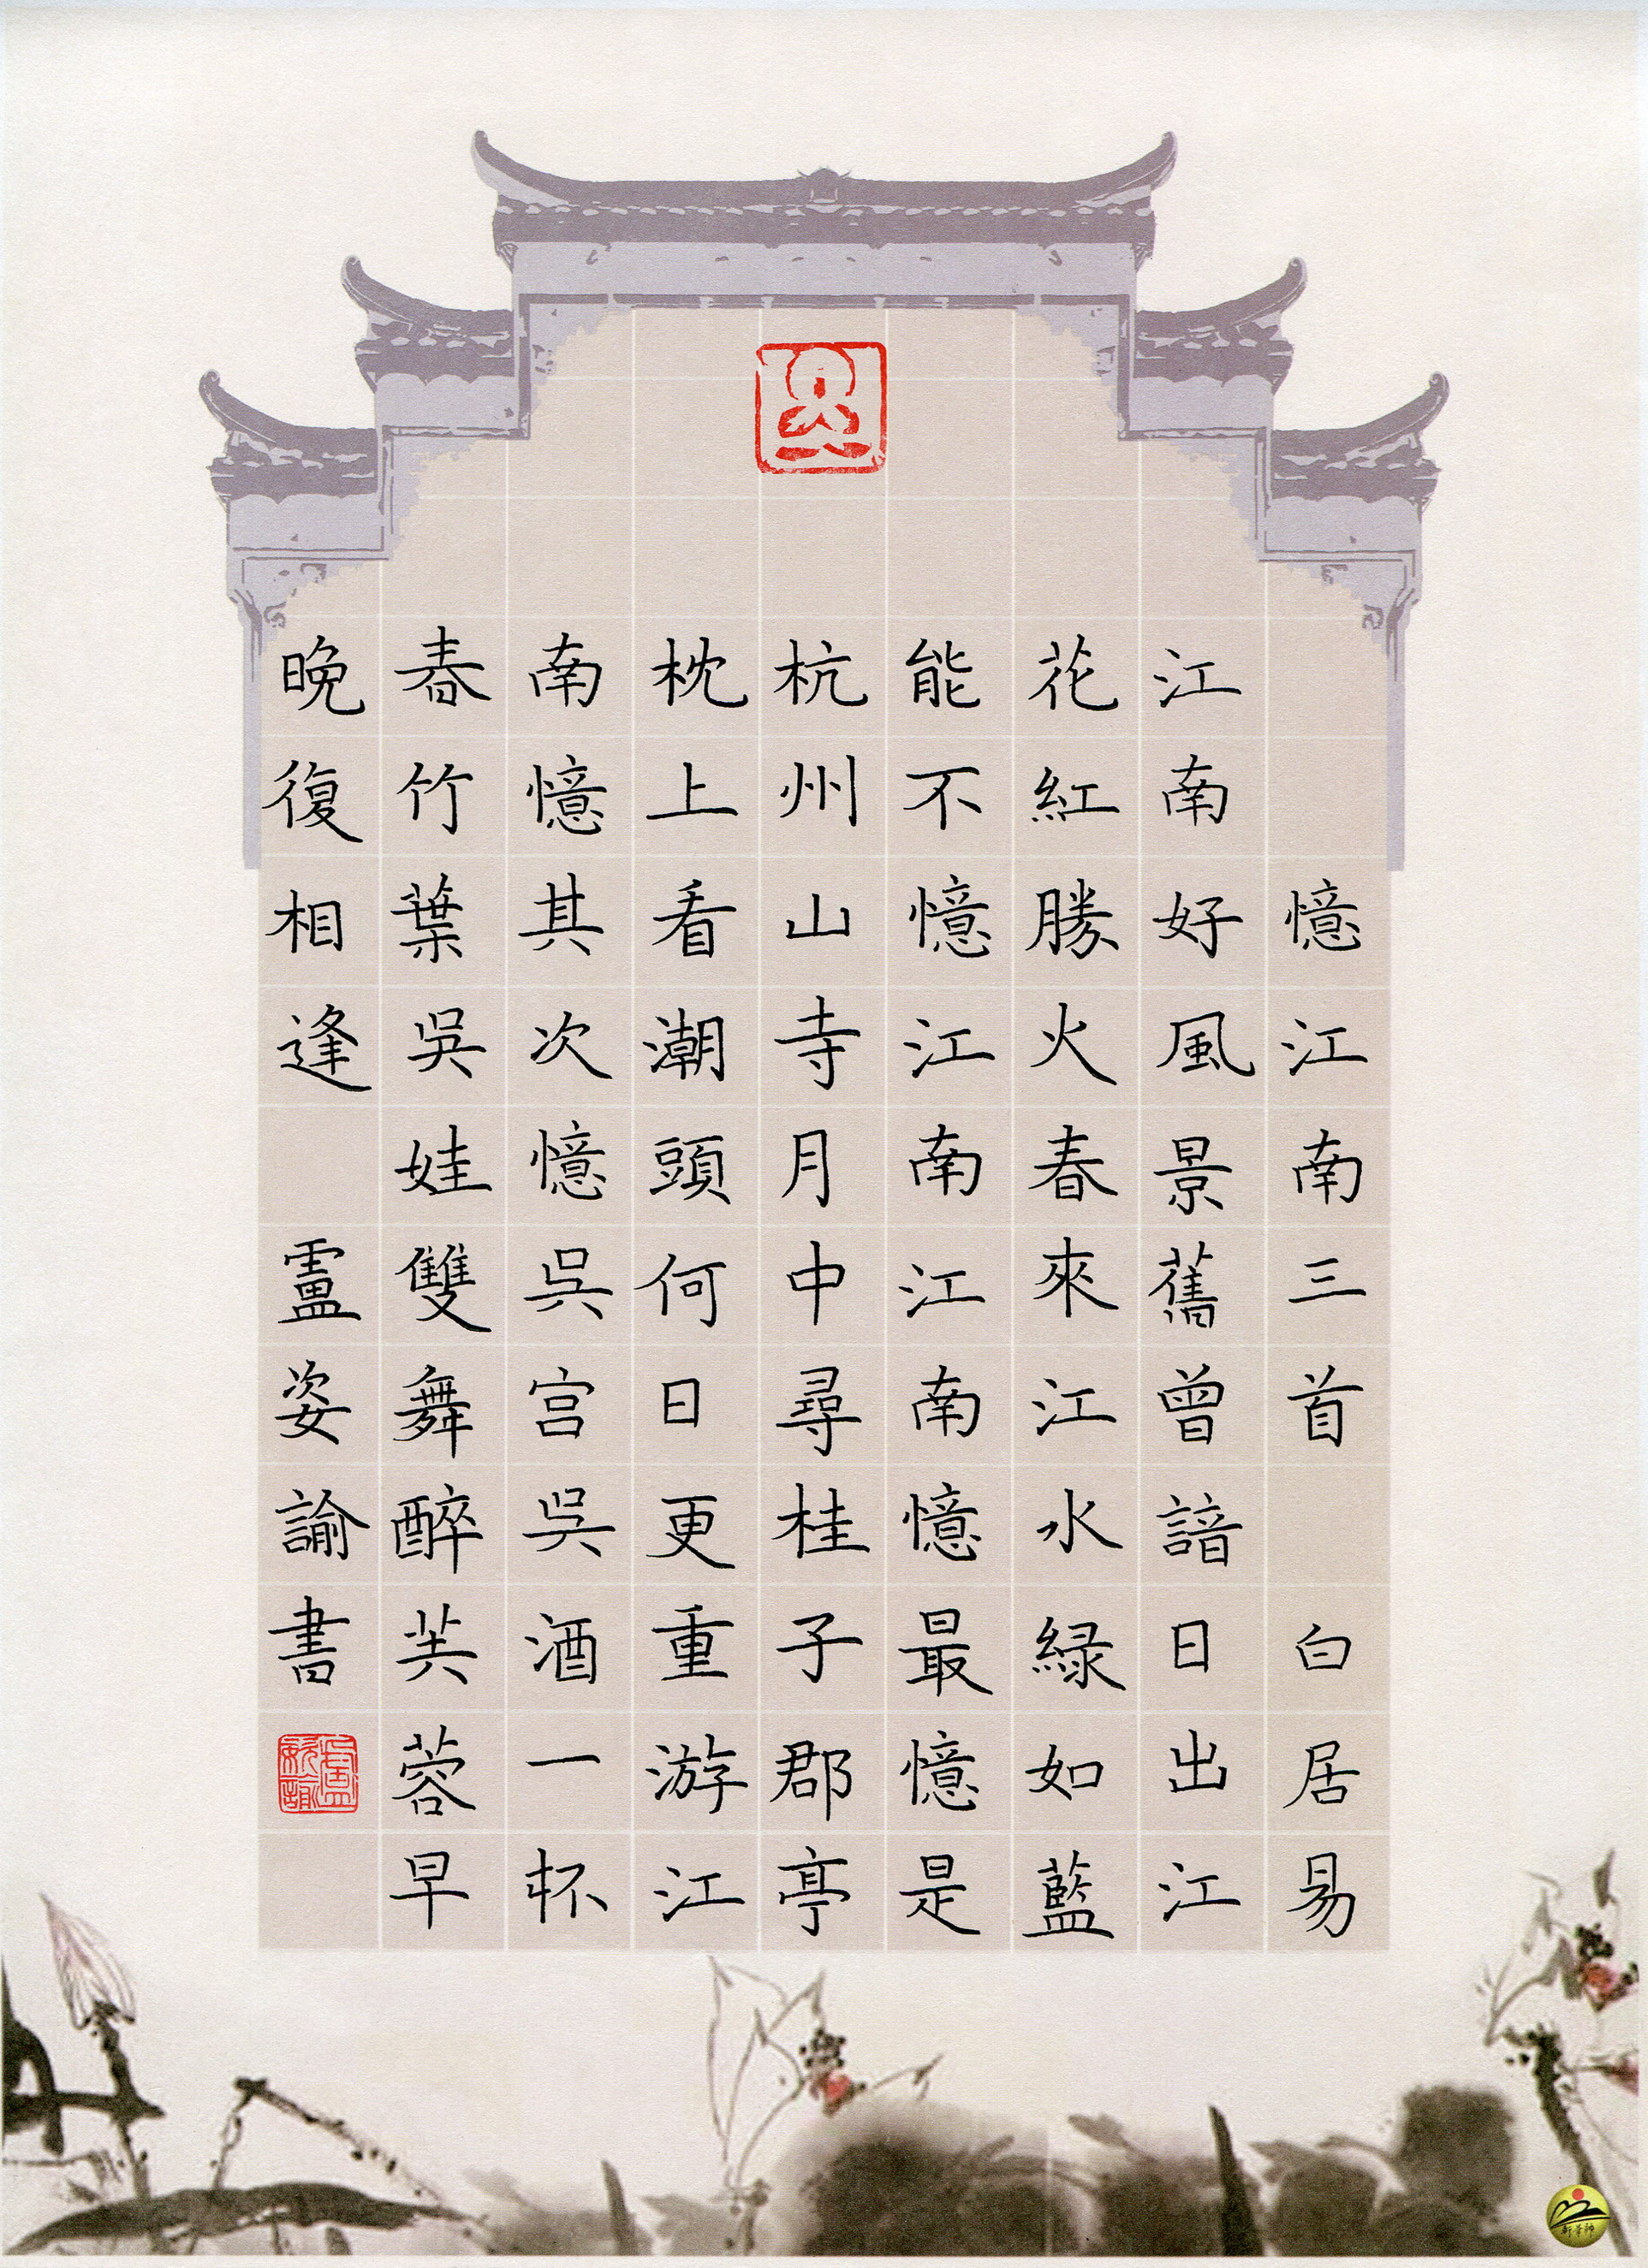 憶江南三首 白居易
江南好風景舊曾諳日出江
花紅勝火春來江水緑如藍
能不憶江南江南憶最憶是
杭州山寺月中尋桂子郡亭
枕上看潮頭何日更重游江
南憶其次憶吳宫吳酒一杯
春竹葉吳娃雙舞醉芙蓉早
晚復相逢 盧姿諭書
盧姿諭